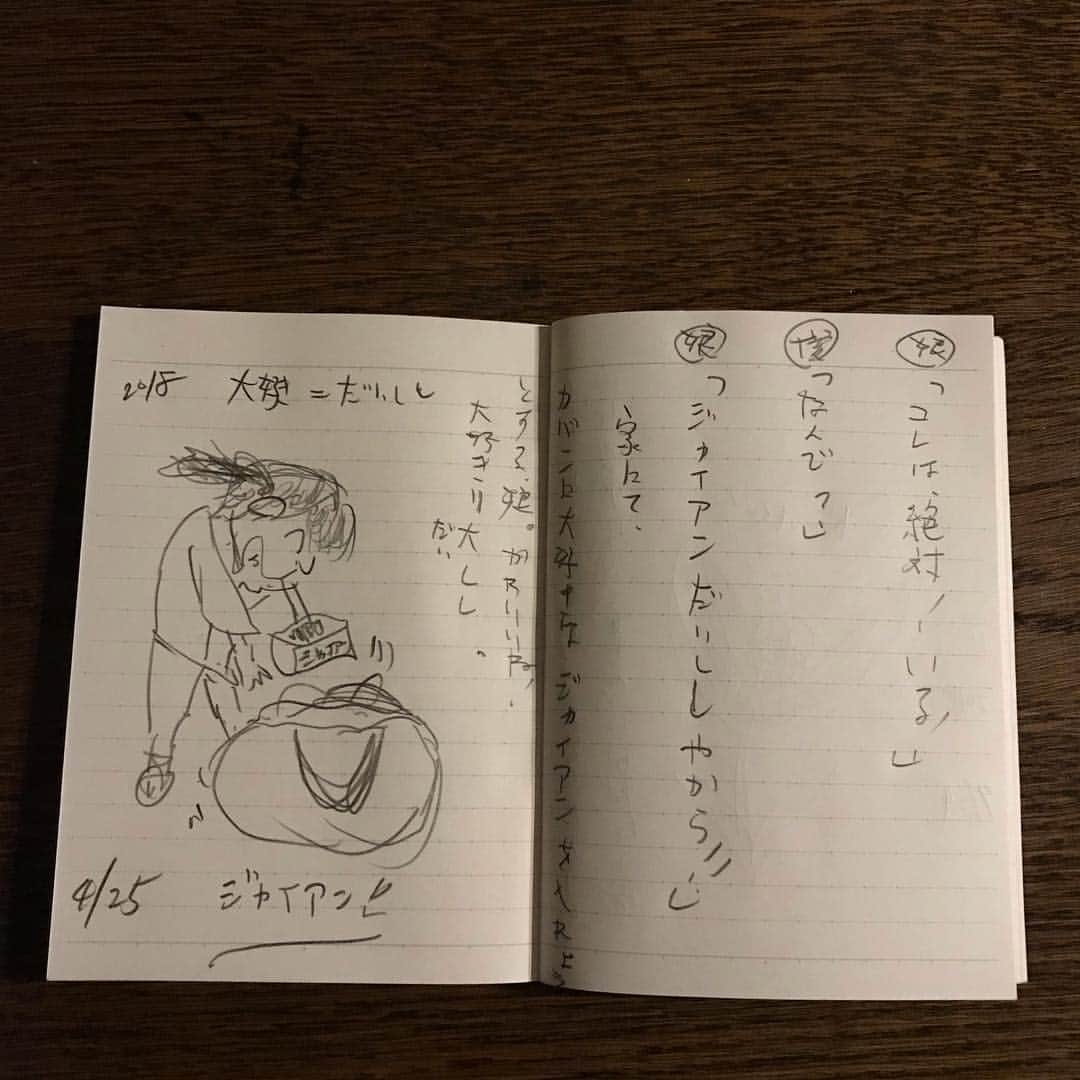 娘
「コレは、絶対ノーいる!」
僕
「なんで?」
娘
「ジャイアンだいじじゃから!!」
家にて、
カバンに大好きな ジャイアンを入れよう
とする、娘。かわいいね!
大好き=大じ。
だい
2018
大好き=だいじと
ジャイア
4/25
ジャイアンと